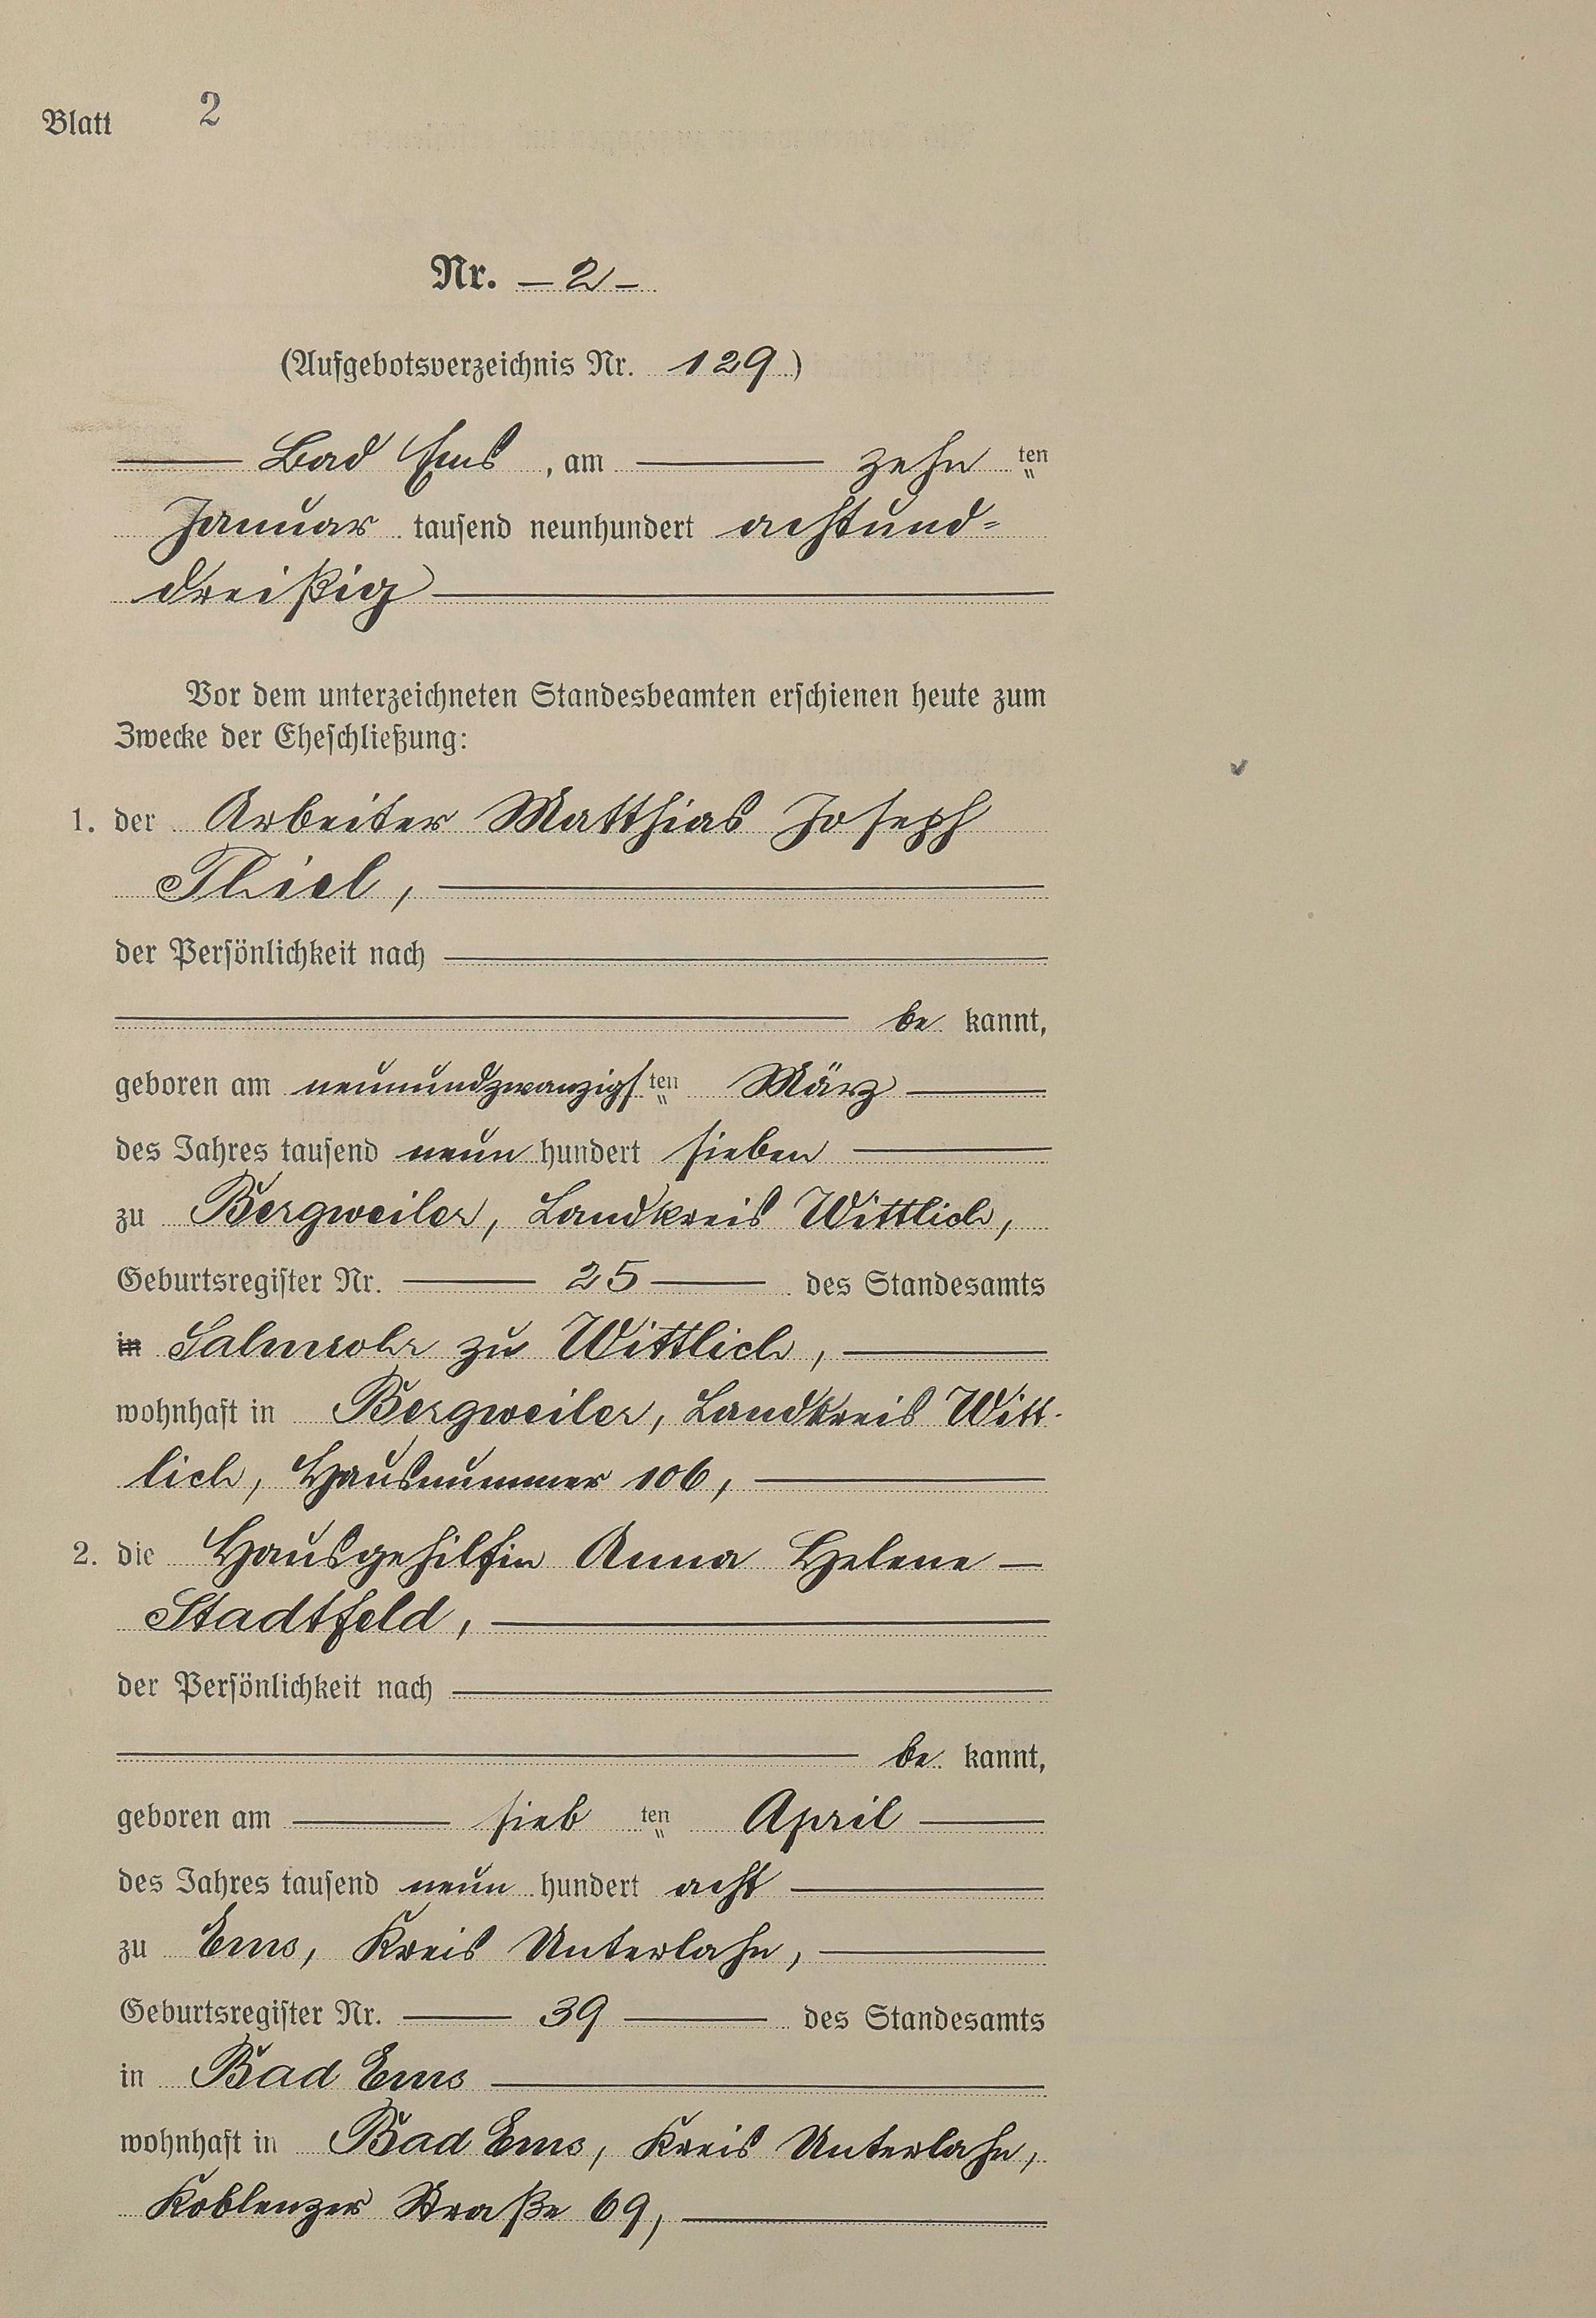 Blatt 2
Nr. — 2 —
(Aufgebotsverzeichnis Nr. 129)
Bad Ems, am zehn ten
Januar tausend neunhundert achtund=
dreißig
Vor dem unterzeichneten Standesbeamten erschienen heute zum
Zwecke der Eheschließung:
1. der Arbeiter Matthias Joseph
Thiel,
der Persönlichkeit nach
be kannt,
geboren am neunundzwanzigs ten März
des Jahres tausend neun hundert sieben
zu Bergweiler, Landkreis Wittlich,
Geburtsregister Nr. 25 des Standesamts
in Salmrohr zu Wittlich,
wohnhaft in Bergweiler, Landkreis Witt-
lich, Hausnummer 106,
2. die Hausgehilfin Anna Helene —
Stadtfeld,
der Persönlichkeit nach
be kannt,
geboren am sieb ten April
des Jahres tausend neun hundert acht
zu Ems, Kreis Unterlahn,
Geburtsregister Nr. 39 des Standesamts
in Bad Ems
wohnhaft in Bad Ems, Kreis Unterlahn,
Koblenzer Straße 69,